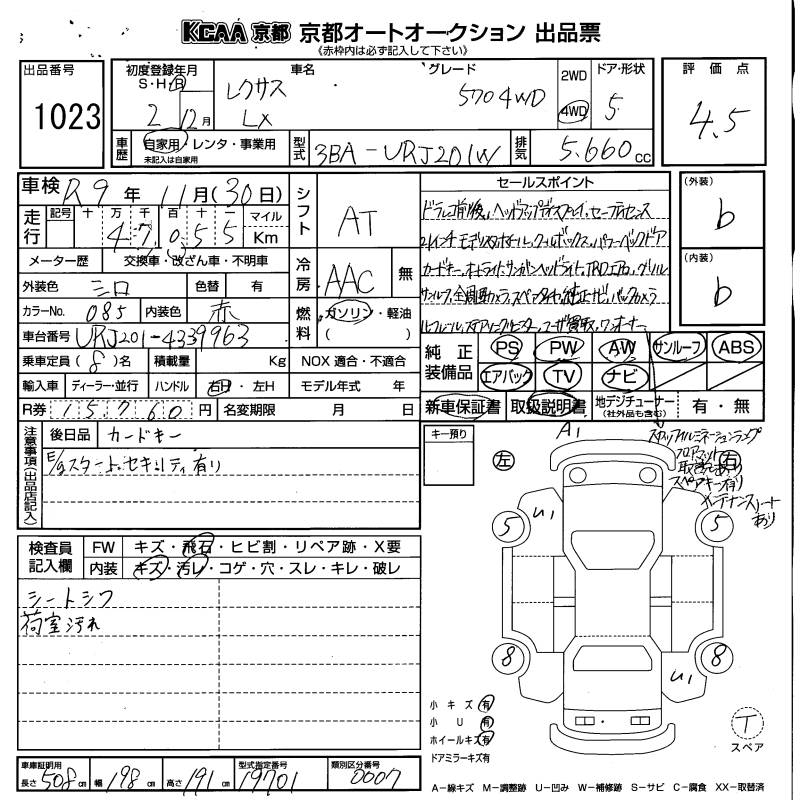 KCAA 京都 京都オートオークション 出品票
《赤枠内は必ず記入して下さい》
出品番号
1023
初度登録年月
S・H・西
2年12月
車名
レクサス
LX
グレード
570 4WD
2WD
4WD
ドア・形状
5
評価点
4.5
車歴
自家用・レンタ・事業用
未記入は自家用
型式
3BA-URJ201W
排気
5.660cc
車検 R9年11月(30日)
走行
記号 十 万 千 百 十 一 マイル
47,055 Km
シフト
AT
セールスポイント
ドラレコ前後、ヘッドアップディスプレイ、セーフティセンス
21インチモデリスタホイール、クールボックス、パワーバックドア
カードキー、オートライト、サンルーフ
サンルーフ、全周囲カメラ、スペアタイヤ、純正ナビ、バックカメラ
ユーザー買取、ワンオーナー
(外装)
b
(内装)
b
メーター歴 交換車・改ざん車・不明車
冷房
AAC
無
外装色 シロ 色替 有
カラーNo. 085 内装色 赤
燃料
ガソリン・軽油
( )
車台番号 URJ201-4339963
乗車定員(8)名 積載量 Kg NOX 適合・不適合
純正装備品
PS PW AW サンルーフ ABS
エアバック TV ナビ
輸入車 ディーラー・並行 ハンドル 右H・左H モデル年式 年
R券 15760円 名変期限 月 日
新車保証書 取扱説明書 地デジチューナー(社外品も含む) 有・無
注意事項(出品店記入)
後日品 カードキー
E/gスタート、セキュリティ有り
キー預り
A1
左
右
ステップイルミネーションランプ
フロアマット
取説あり
スペアキー有り
メンテナンスノート
あり
検査員記入欄
FW キズ・飛石・ヒビ割・リペア跡・X要
内装 キズ・汚レ・コゲ・穴・スレ・キレ・破レ
シートシワ
荷室汚れ
5
U1
5
8
U1
8
小キズ 有
小 U 有
ホイールキズ 有
ドアミラーキズ 有
T
スペア
車庫証明用
長さ 508cm 幅 198cm 高さ 191cm
型式指定番号
19701
類別区分番号
0007
A-線キズ M-調整跡 U-凹み W-補修跡 S-サビ C-腐食 XX-取替済